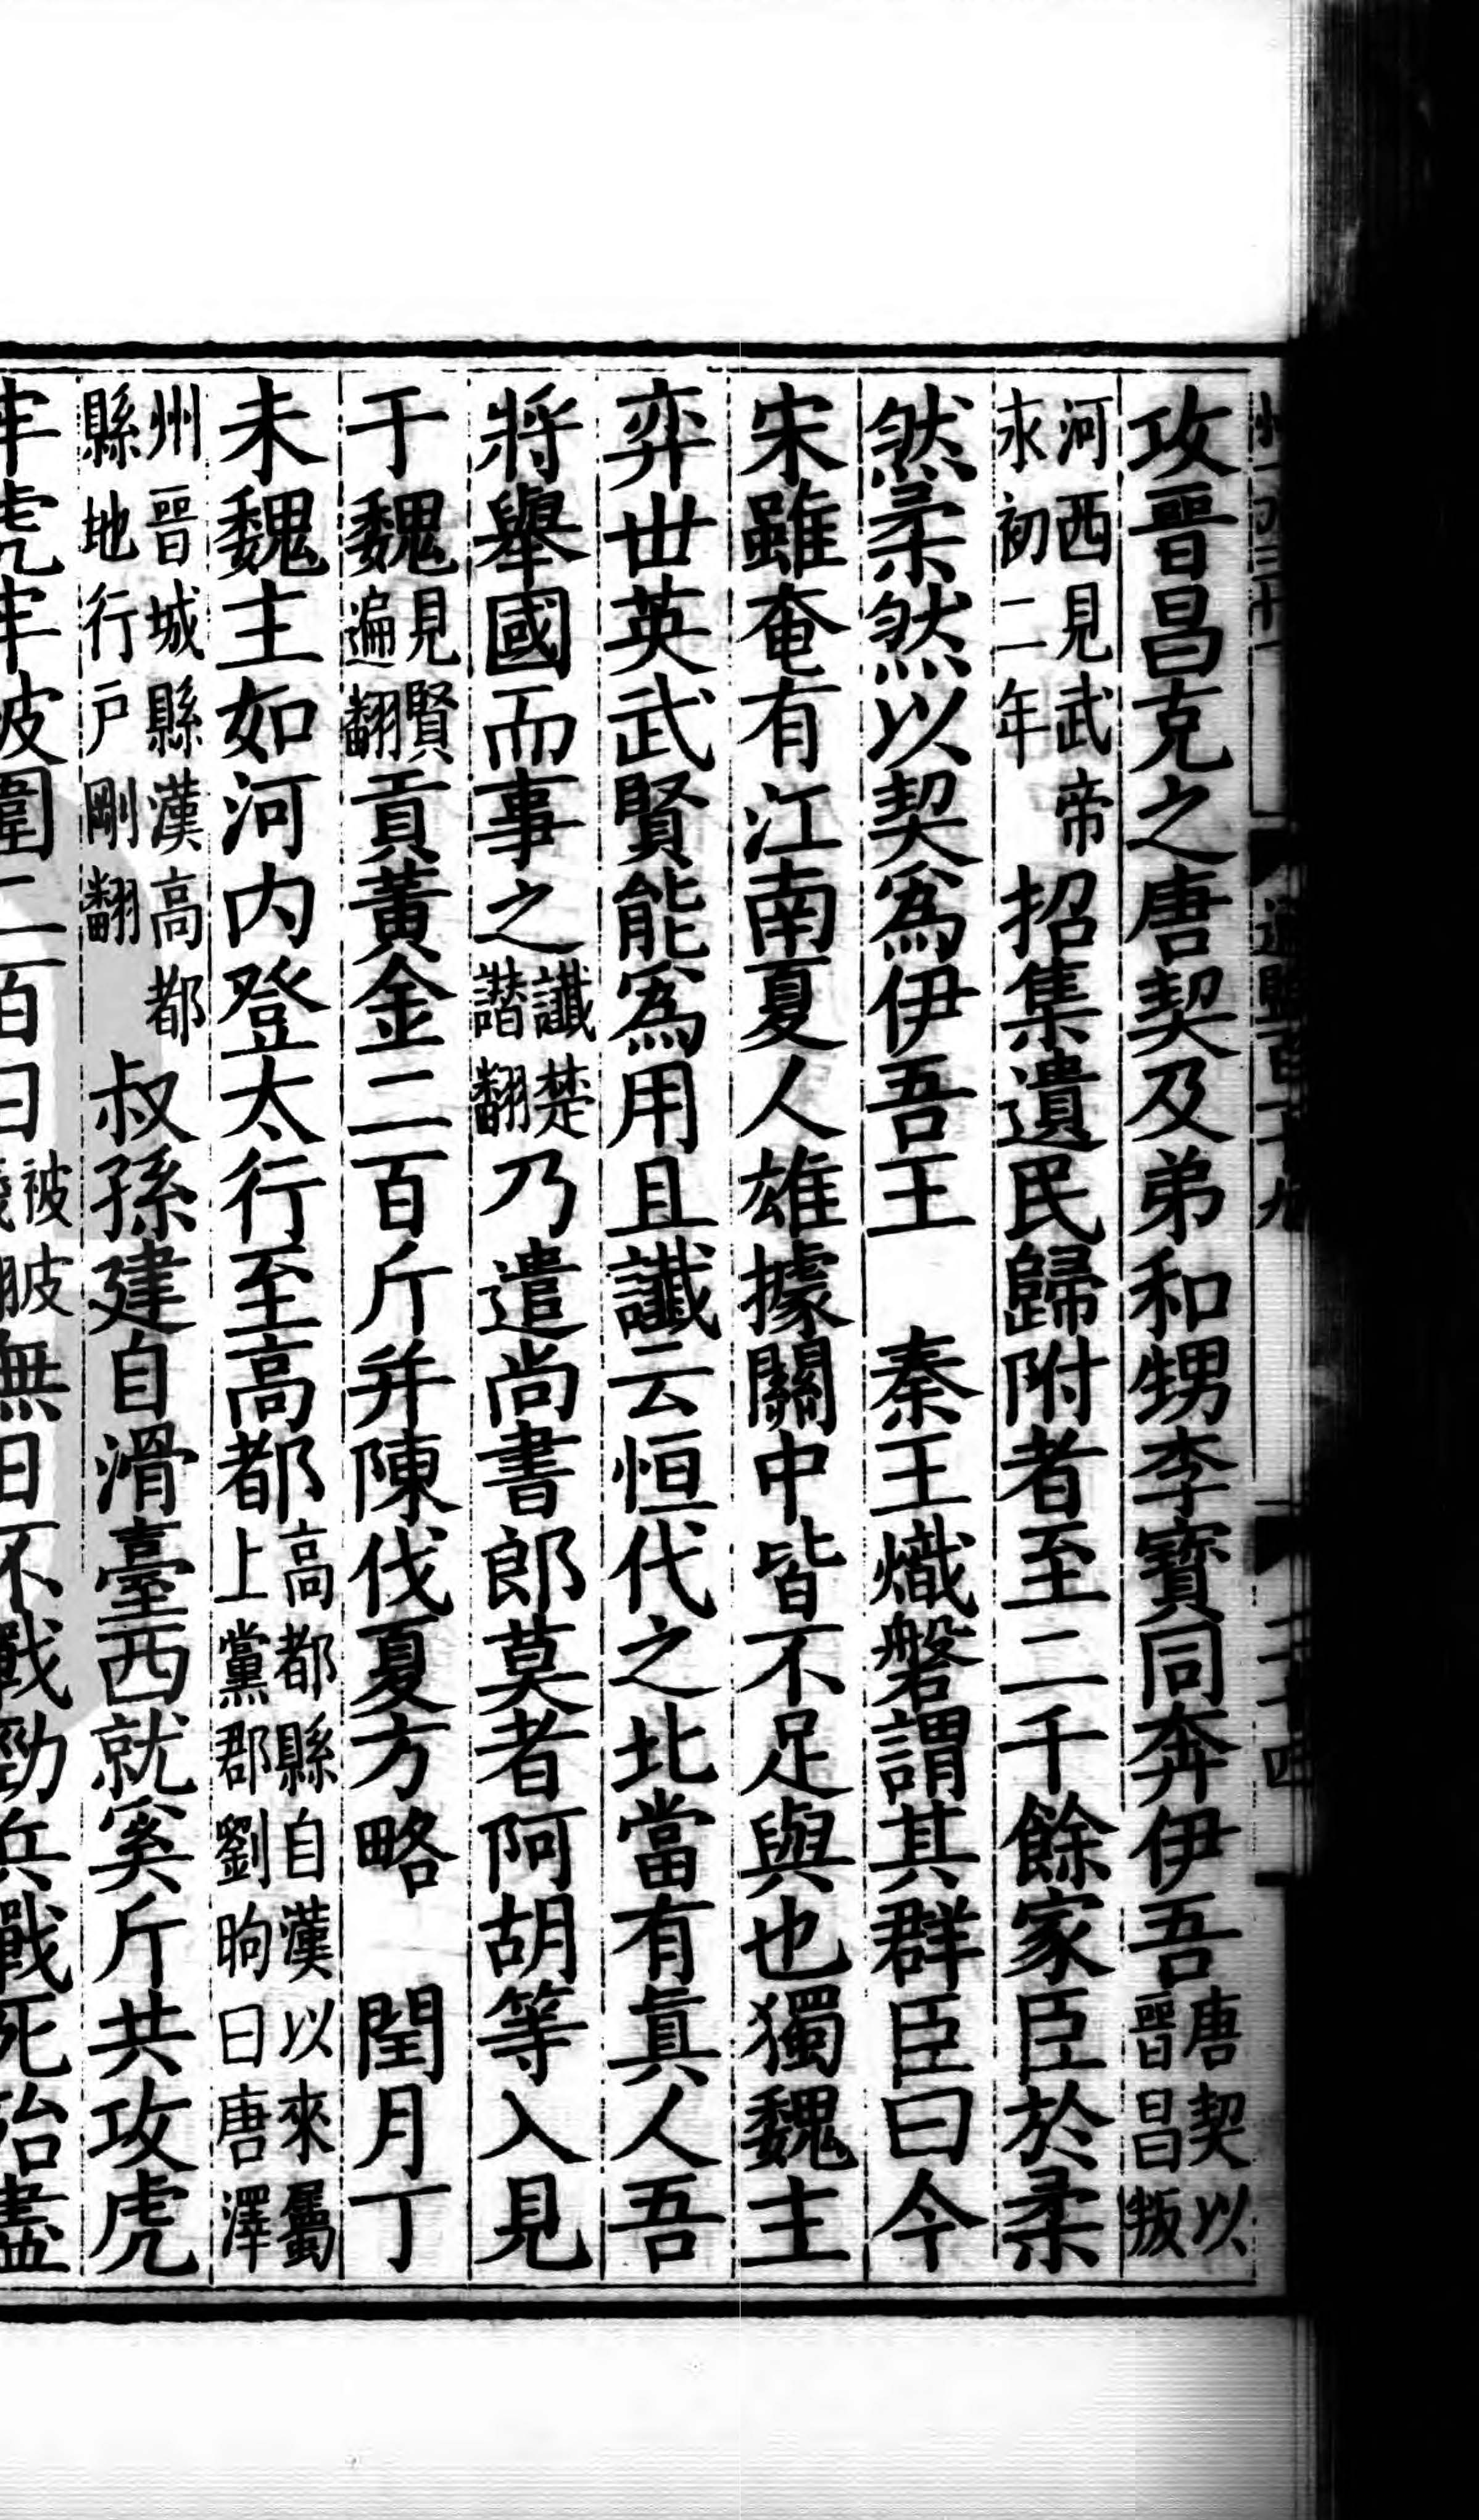 攻晉昌克之唐契及弟和甥李寶同奔伊吾唐契以晉昌叛
河西見武帝永初二年招集遺民歸附者至二千餘家臣於柔
然柔然以契爲伊吾王　秦王熾磐謂其群臣曰今
宋雖奄有江南夏人雄據關中皆不足與也獨魏主
弈世英武賢能爲用且讖云恒代之北當有眞人吾
將舉國而事之讖楚譖翻乃遣尚書郎莫者阿胡等入見
于魏見賢遍翻貢黃金二百斤并陳伐夏方略　閏月丁
未魏主如河内登太行至高都高都縣自漢以來屬上黨郡劉昫曰唐澤
州晉城縣漢高都縣地行戶剛翻叔孫建自滑臺西就奚斤共攻虎
牢虎牢被圍二百日被皮無日不戰勁兵戰死殆盡